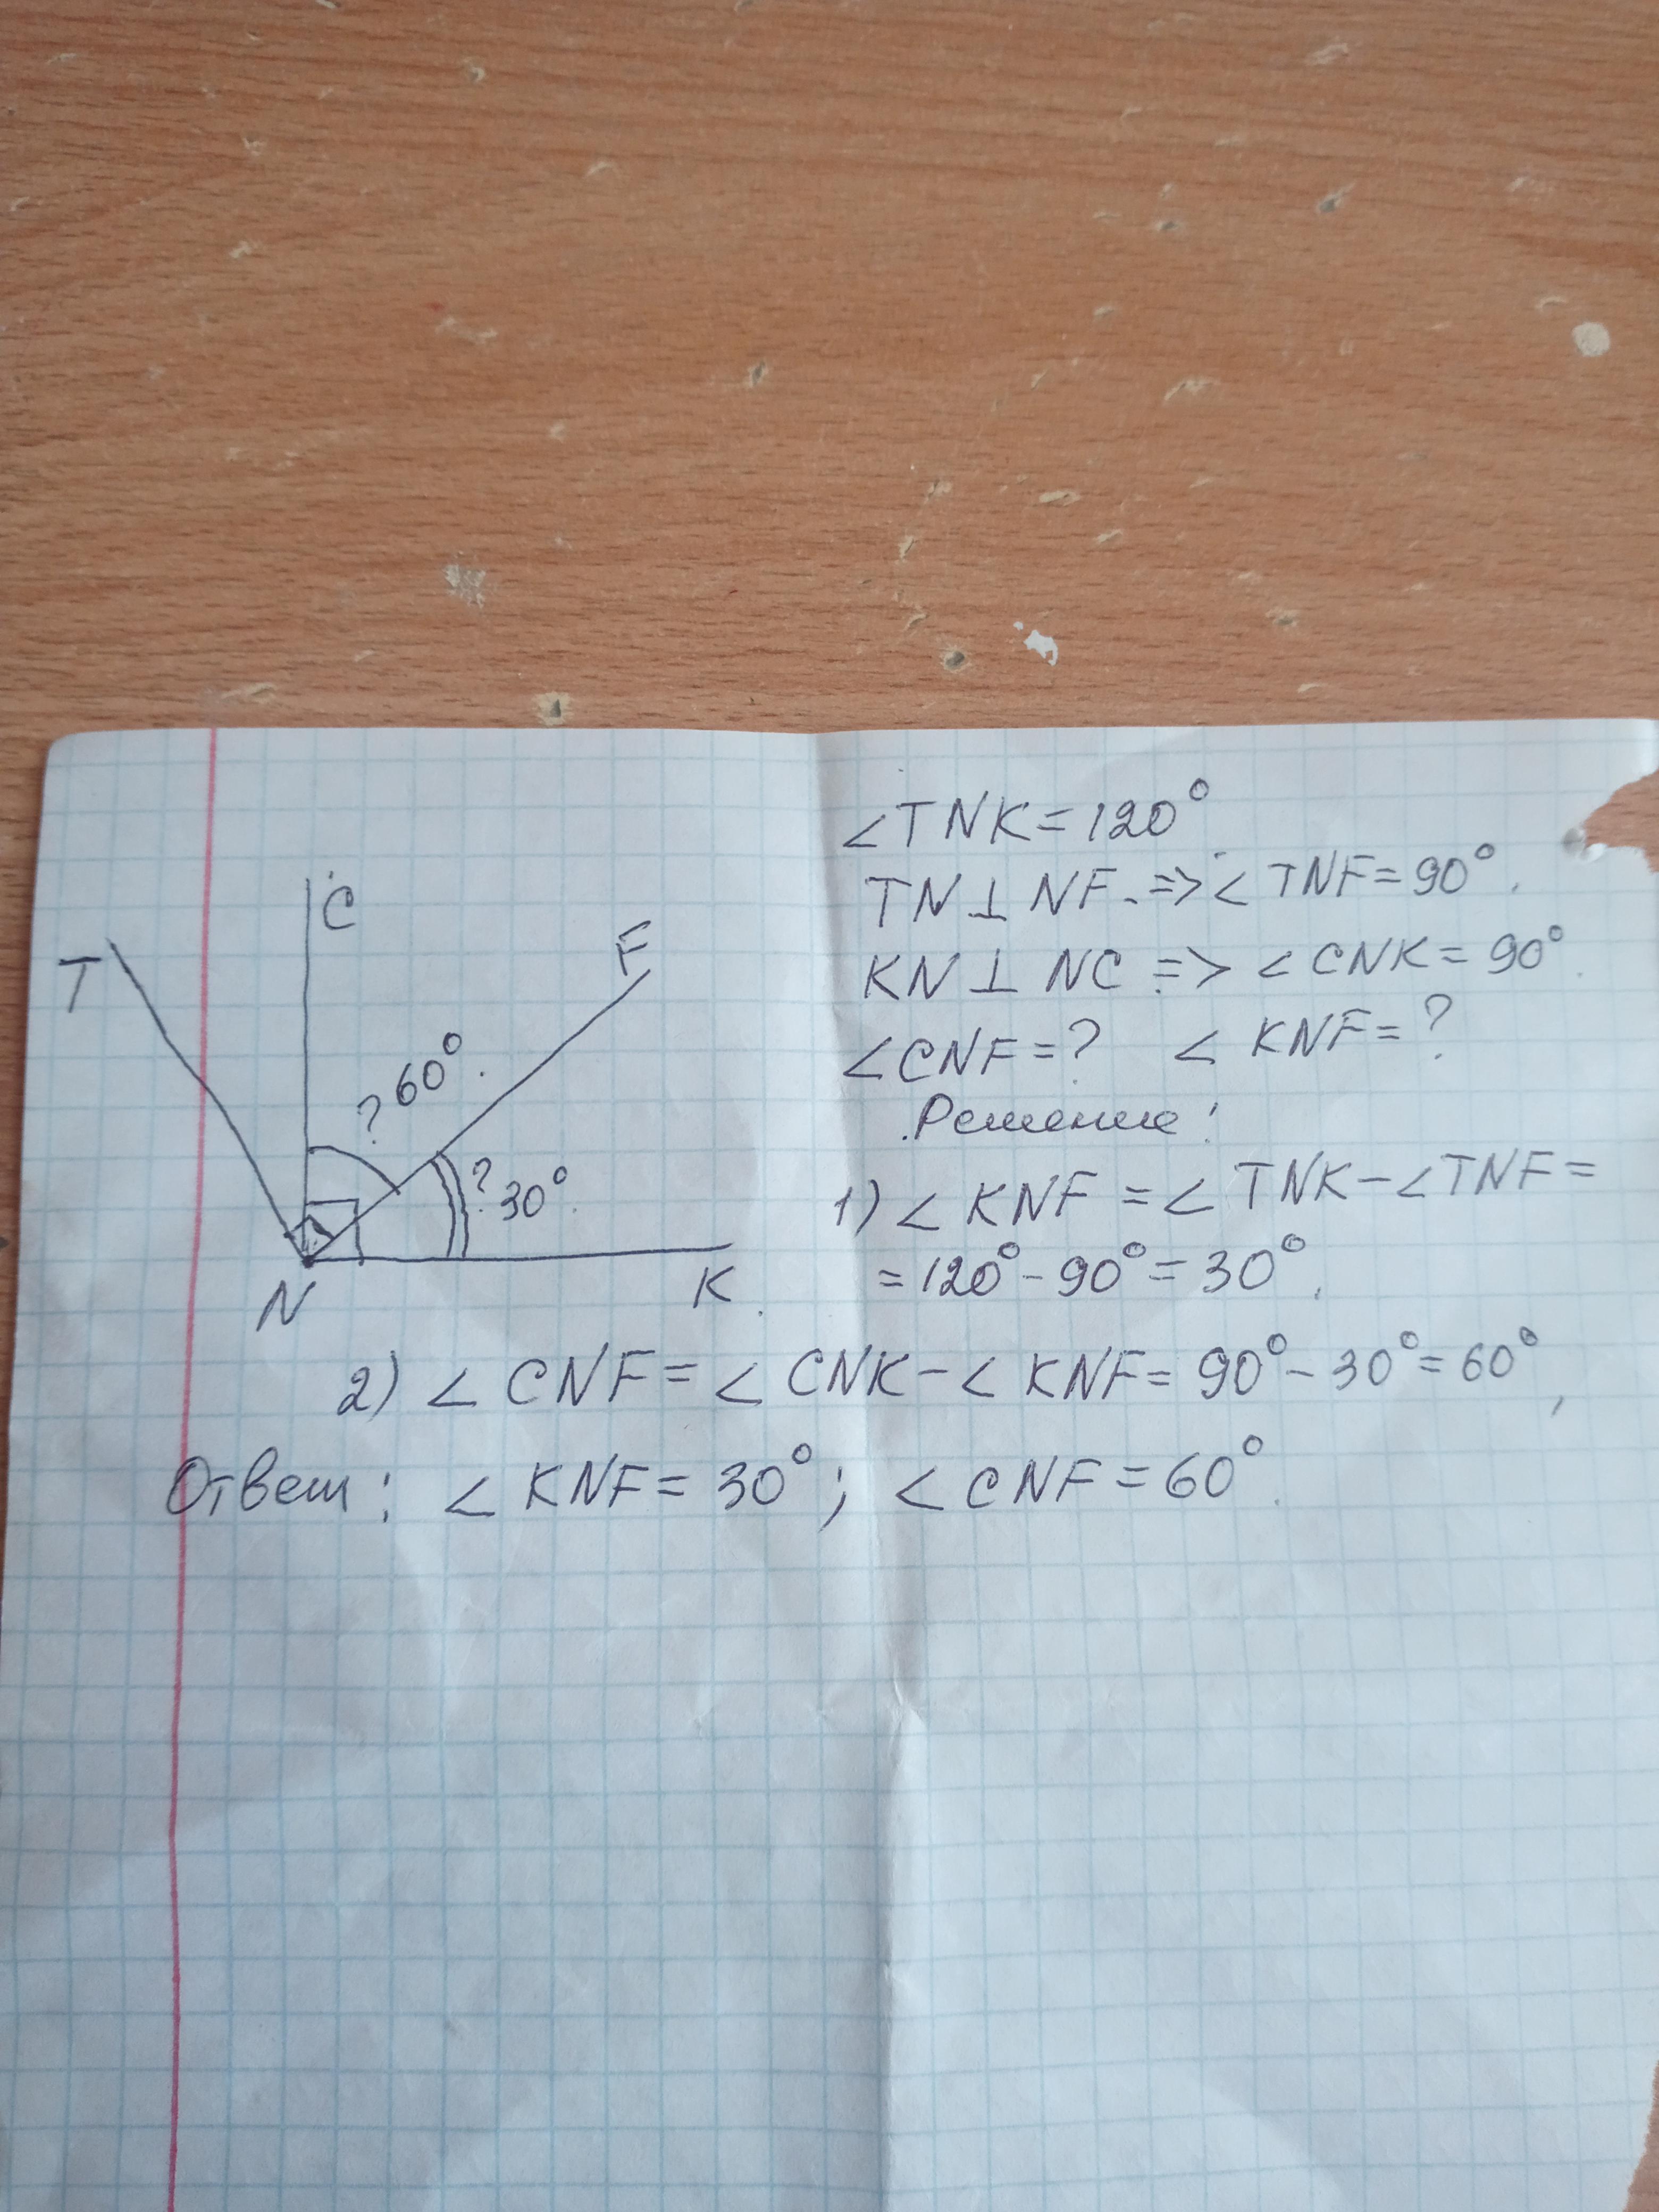 T
C
F
? 60°.
? 30°.
N
K.
∠TNK=120°
TN⊥NF. => ∠TNF=90°.
KN⊥NC => ∠CNK=90°.
∠CNF=? ∠KNF=?
Решение:
1) ∠KNF=∠TNK-∠TNF=
=120°-90°=30°.
2) ∠CNF=∠CNK-∠KNF=90°-30°=60°,
Ответ: ∠KNF=30°; ∠CNF=60°.